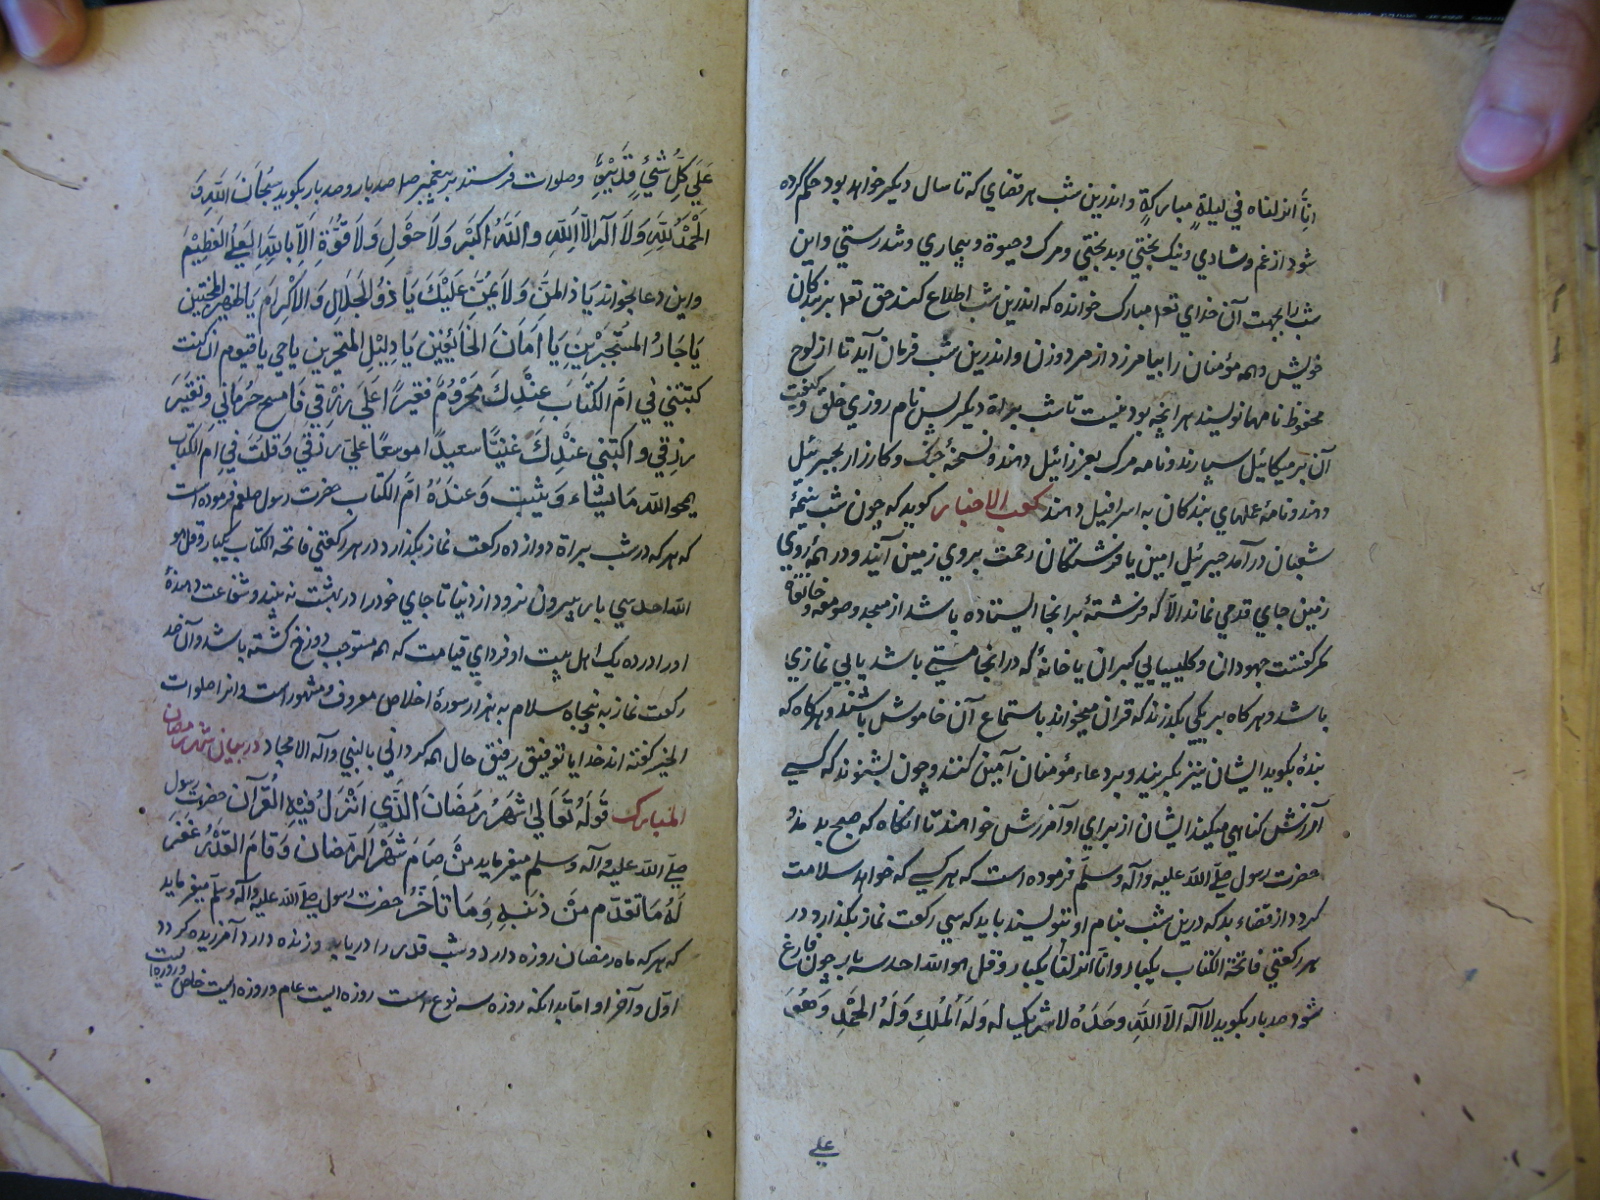 انا انزلناه في ليلة مباركة و اندرين شب هر قضاي كه تا سال ديكر خواهد بود حكم كرده
شود از غم و شادي و نيك بختي و بد بختي و مرك و حيوة و بيماري و تندرستي و اين
شب را بجهت آن خداي تعا مبارك خوانده كه اندرين شب اطلاع كند حق تعا بر بندكان
خويش و همه مؤمنان را بيامرزد از مرد و زن و اندرين شب فرمان آيد تا از لوح
محفوظ نامها نويسند هر انچه بودنيست تا شب براة ديكر پس نام روزي خلق و كيفيت
آن بر ميكائيل سپارند و نامه مرك بعزرائيل دهند و نسخهٔ جنك و كارزار بجبرئيل
دهند و نامهٔ عملهاي بندكان به اسرافيل دهند كعب الاخبار كويد كه چون شب نيمهٔ
شعبان در آمد جبرئيل امين با فرشتكان رحمت بروي زمين آيند و در همهٔ روي
زمين جاي قدمي نماند الا كه فرشتهٔ بر انجا ايستاده باشد از مسجد و صومعه و خانقاه
مكر كنشت جهودان و كليسيايي كبران يا خانهٔ كه در انجا مستي باشد يا بي نمازي
باشد و هر كاه بر يكي بكذرند كه قران ميخواند باستماع آن خاموش باشند و هر كاه كه
بندهٔ بكويد ايشان نيز بكريند و بر دعاء مؤمنان آمين كنند و چون بشنوند كه كسي
آمرزش كناهي ميكند ايشان از براي او آمرزش خواهند تا انكاه كه صبح بدمد و
حضرت رسول صلي الله عليه و آله و سلم فرموده است كه هر كسي كه خواهد سلامت
كردد از قضاء بد كه درين شب بنام او بنويسند بايد كه سي ركعت نماز بكذارد و در
هر ركعتي فاتحة الكتاب يكبار و انا انزلنا يكبار و قل هو الله احد سه بار چون فارغ
شود صد بار بكويد لا اله الا الله وحده لا شريك له و له الملك و له الحمد و هو
علي
علي كل شيء قدير و صلوات فرستد بر پيغمبر ص صد بار و صد بار بكويد سبحان الله و
الحمد لله و لا اله الا الله و الله اكبر و لا حول و لا قوة الا بالله العلي العظيم
و اين دعا بخواند يا ذا المن و لا يمن عليك يا ذو الجلال و الاكرام يا ظهير اللاجئين
يا جار المستجيرين يا امان الخائفين يا دليل المتحيرين يا حي يا قيوم ان كنت
كتبتني في ام الكتاب عندك محروم فقيرا علي رزقي فامسح حرماني و تقتير
رزقي و اكتبني عندك غنيا سعيدا موسعا علي رزقي و قلت في ام الكتاب
يمحو الله ما يشاء و يثبت و عنده ام الكتاب حضرت رسول صلعم فرموده است
كه هر كه در شب براة دوازده ركعت نماز بكذارد در هر ركعتي فاتحة الكتاب يكبار و قل هو
الله احد سي بار بيرون نرود از دنيا تا جاي خود را در بهشت نه بيند و شفاعت دهنده
او را در ده يك اهل بيت او فرداي قيامت كه همه مستوجب دوزخ كشته باشد و آن صد
ركعت نماز به پنجاه سلام به هزار سورهٔ اخلاص معروف و مشهور است و انرا صلوات
الخير كفته اند خدايا توفيق رفيق حال همه كرداني بالنبي و آله الامجاد در بيان شهر رمضان
المبارك قوله تعالي شهر رمضان الذي انزل فيه القرآن حضرت رسول
صلي الله عليه و آله و سلم ميفرمايد من صام شهر الرمضان و قام القدر غفر
له ما تقدم من ذنبه و ما تأخر حضرت رسول صلي الله عليه و آله و سلم ميفرمايد
كه هر كه ماه رمضان روزه دارد و شب قدر را دريابد و زنده دارد آمرزيده كردد
اول و آخر او اما بدانكه روزه سه نوع است روزه ايست عام و روزه ايست خاص و روزه است